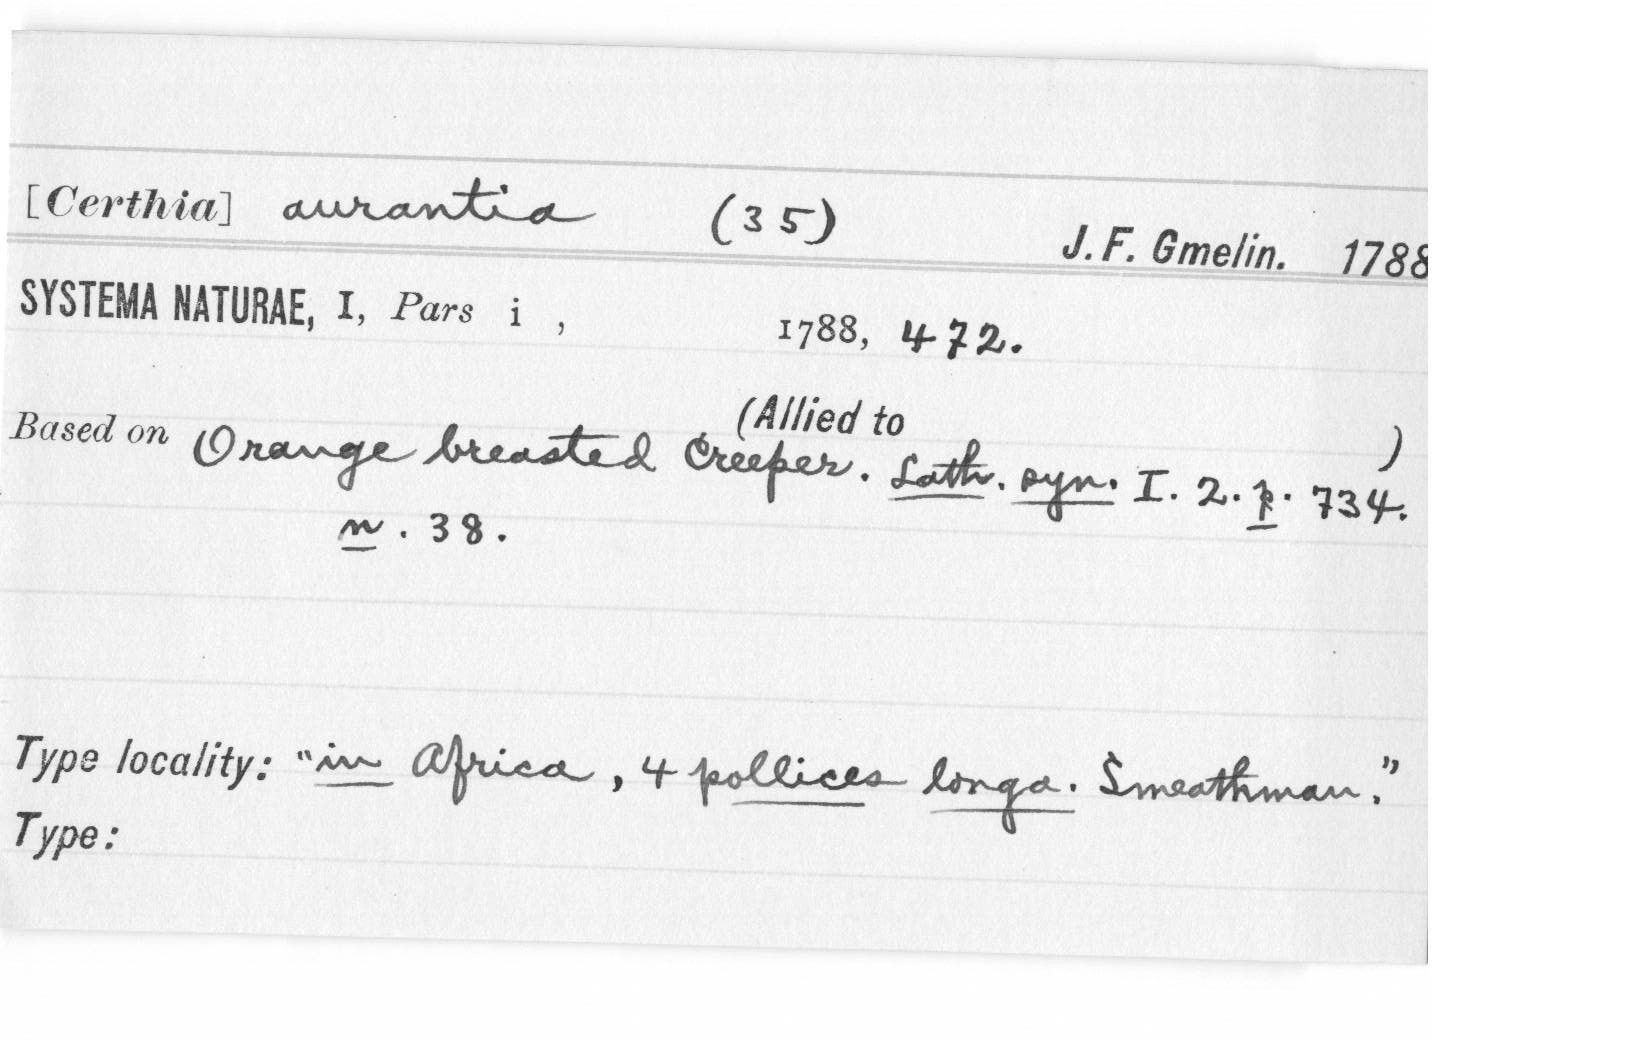 [Certhia] aurantia (35) J. F. Gmelin. 1788
SYSTEMA NATURAE, I, Pars i , 1788, 472.
(Allied to )
Based on Orange breasted Creeper. Lath. syn. I. 2. p. 734.
n. 38.
Type locality: "in Africa, 4 pollices longa. Smeathman."
Type: